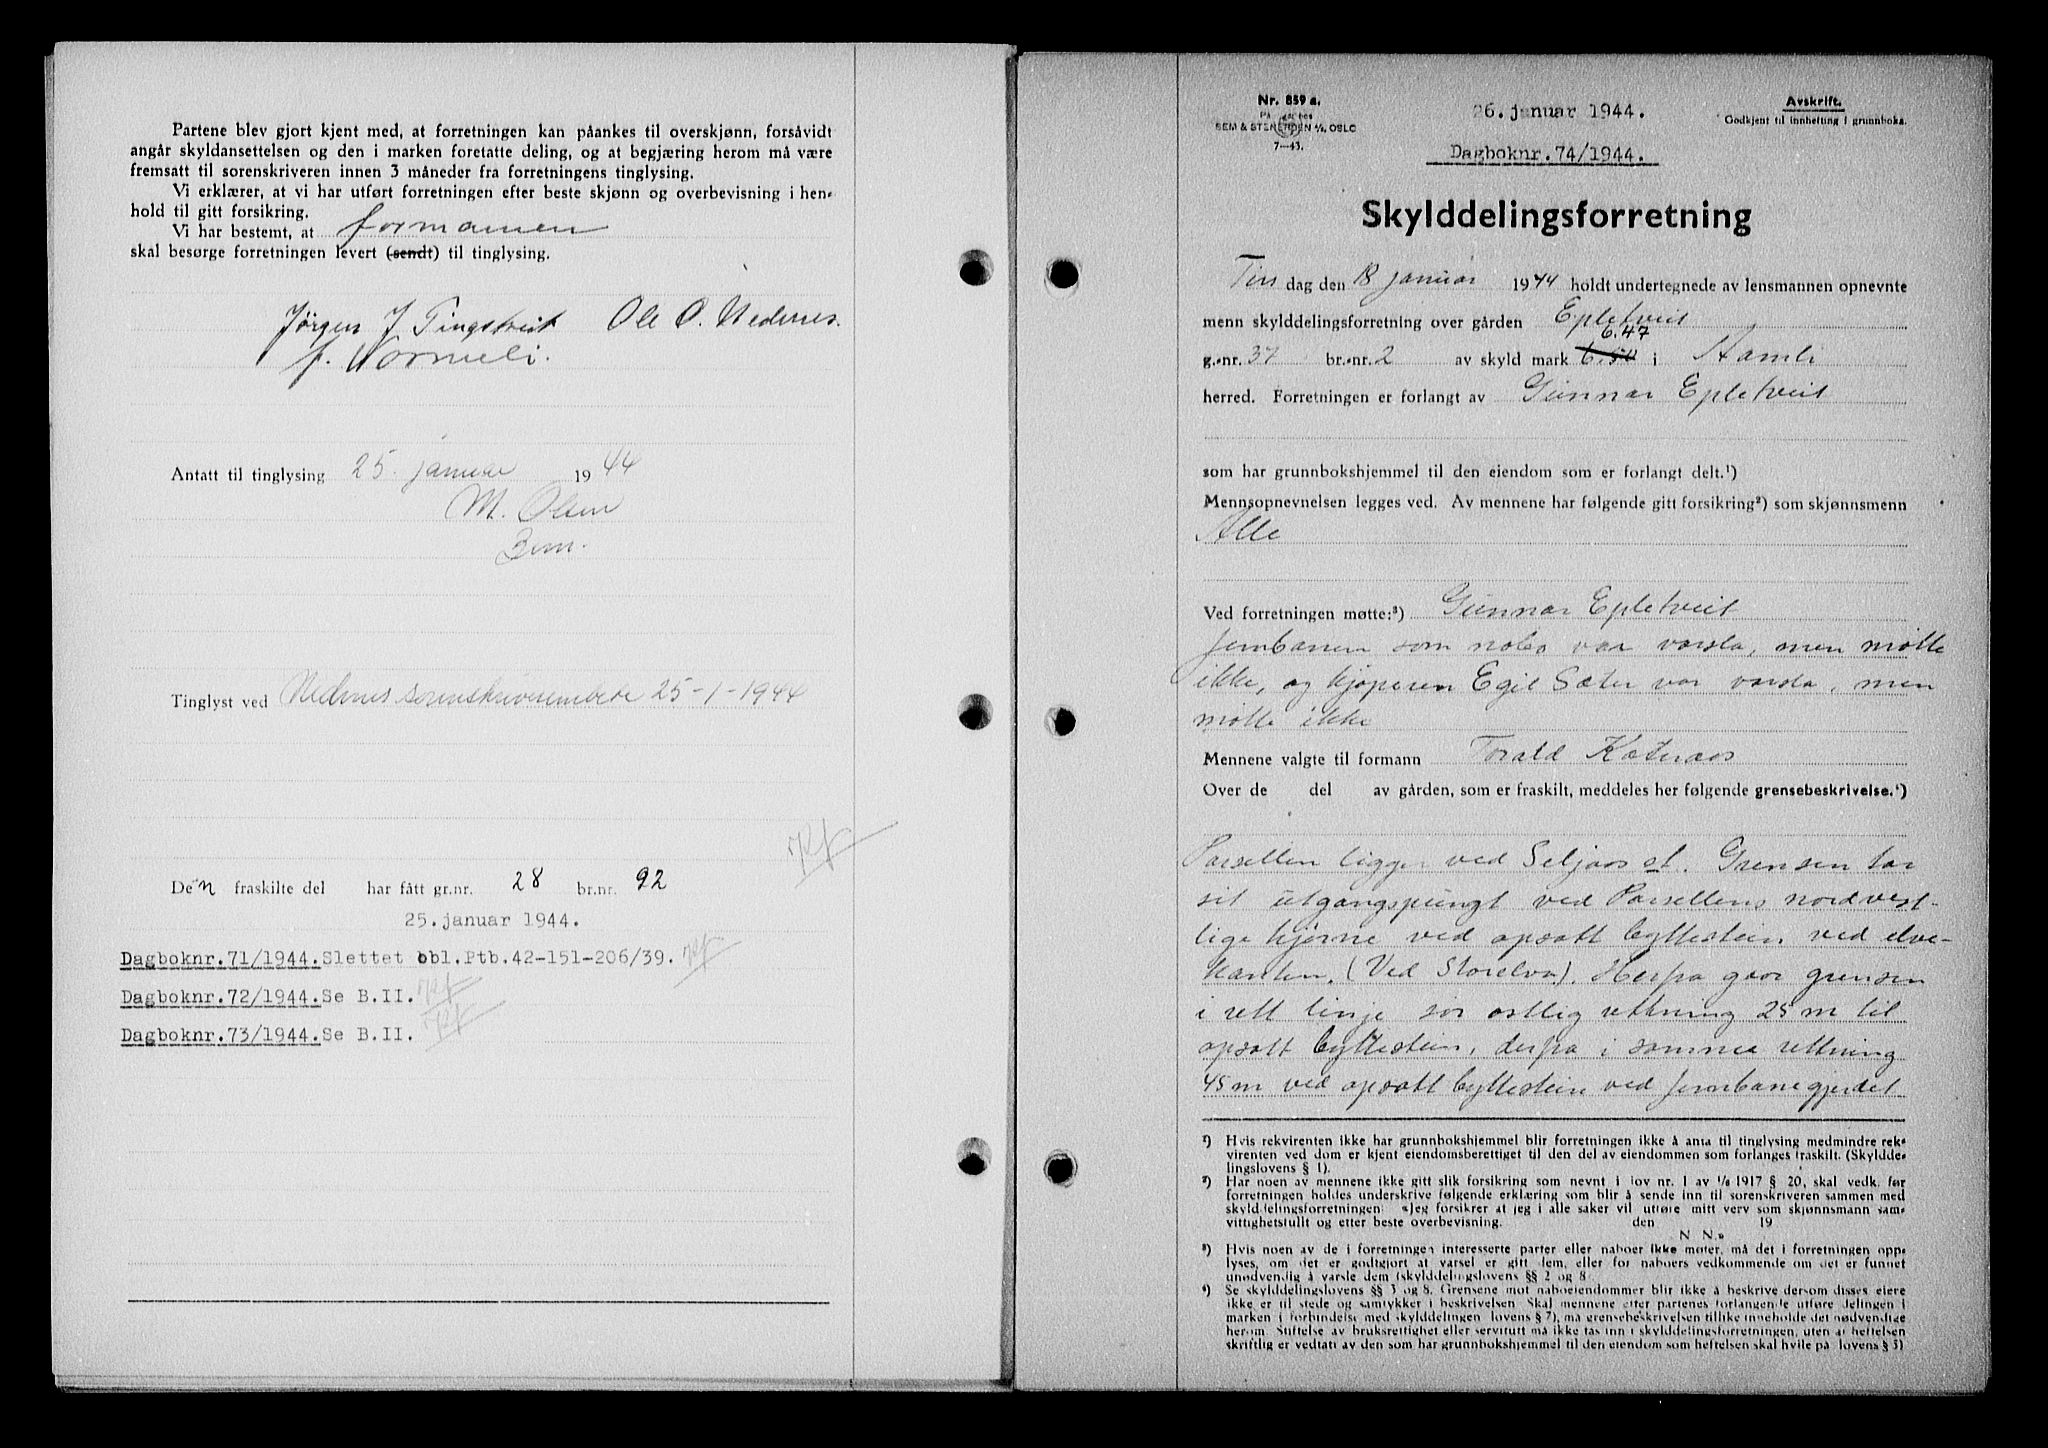 Partene blev gjort kjent med, at forretningen kan påankes til overskjønn, forsåvidt
angår skyldansettelsen og den i marken foretatte deling, og at begjæring herom må være
fremsatt til sorenskriveren innen 3 måneder fra forretningens tinglysing.
Vi erklærer, at vi har utført forretningen efter beste skjønn og overbevisning i hen-
hold til gitt forsikring.
Vi har bestemt, at formannen
skal besørge forretningen levert (sendt) til tinglysing.
Jørgen J Tingstveit Ole O. Nedenes.
Antatt til tinglysing 25. januar 1944
M. Olsen
Tinglyst ved Nedenes sorenskriverembede 25-1-1944
Den fraskilte del har fått gr.nr. 28 br.nr. 92
25. januar 1944.
Dagboknr.71/1944.Slettet obl.Ptb.42-151-206/39.
Dagboknr.72/1944.Se B.II.
Dagboknr.73/1944.Se B.II.
Nr. 859 a.
På lager hos
SEM & STENERSEN A/S, OSLO
7—43.
26. januar 1944.
Dagboknr.74/1944.
Avskrift.
Godkjent til innhefting i grunnboka.
Skylddelingsforretning
Tirsdag den 18 januar 1944 holdt undertegnede av lensmannen opnevnte
menn skylddelingsforretning over gården Epletveit
6.47
g.-nr. 37 br.-nr. 2 av skyld mark 6.50 i Åmli
herred. Forretningen er forlangt av Gunnar Epletveit
som har grunnbokshjemmel til den eiendom som er forlangt delt.¹)
Mennsopnevnelsen legges ved. Av mennene har følgende gitt forsikring²) som skjønnsmenn
Alle
Ved forretningen møtte:³) Gunnar Epletveit
Jernbanen som nabo var varsla, men møtte
ikke, og kjøperen Egil Sæter var varsla, men
møtte ikke
Mennene valgte til formann Torald Kateraas
Over de del av gården, som er fraskilt, meddeles her følgende grensebeskrivelse.⁴)
Parsellen ligger ved Seljaas st. Grensen tar
sit utgangspungt ved Parsellens nordvest-
lige hjørne ved opsatt byttestein ved elve-
kanten. (Ved Storelva). Herfra gaar grensen
i rett linje sør ostlig rettning 25 m til
opsatt byttestein, derfra i samme rettning
45 m ved opsatt byttestein ved Jernbanegjerdet
¹) Hvis rekvirenten ikke har grunnbokshjemmel blir forretningen ikke å anta til tinglysing medmindre rek-
virenten ved dom er kjent eiendomsberettiget til den del av eiendommen som forlanges fraskilt. (Skyldde-
lingslovens § 1).
²) Har noen av mennene ikke gitt slik forsikring som nevnt i lov nr. 1 av 1/6 1917 § 20, skal vedk. før
forretningen holdes underskrive følgende erklæring som blir å sende inn til sorenskriveren sammen med
skylddelingsforretningen: «Jeg forsikrer at jeg i alle saker vil utføre mitt verv som skjønnsmann sam-
vittighetsfullt og etter beste overbevisning. den 19
N. N.»
³) Hvis noen av de i forretningen interesserte parter eller naboer ikke møter, må det i forretningen opp-
lyses, om det er godtgjort at varsel er gitt dem, eller for naboers vedkommende om det er funnet
unødvendig å varsle dem (skylddelingslovens §§ 2 og 8
⁴) Se skylddelingslovens §§ 3 og 8. Grensene mot naboeiendommer blir ikke å beskrive dersom disses eiere
ikke er til stede og samtykker i beskrivelsen Skal mennene etter partenes forlangende utføre delingen i
marken i forbindelse med skylddelingen (lovens § 7), må grensebeskrivelsen tillike inneholde det nødvendige
herom. Stiftelse av bruksrettighet eller servitutt må ikke tas inn i skylddelingsforretningen, uten at heftelsen
skriftlig er vedtatt av den som har grunnbokshjemmel til den eiendom som heftelsen skal hvile på (lovens § 3)